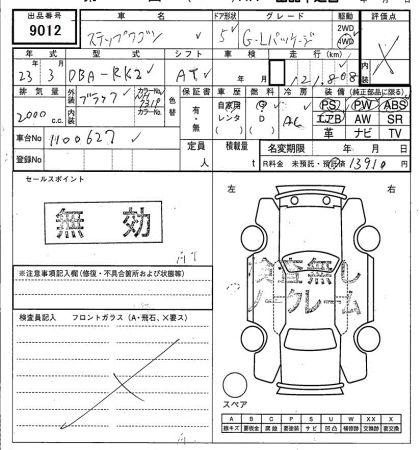 出品番号 車名 ドア形状 グレード 駆動 評価点
9012 ステップワゴン 5 G-Lパッケージ 2WD 4WD
年式 型式 シフト 車検 走行(km) 内装
23年3月 DBA-RK2 AT 年 月 121,808
排気量 外装 ブラック カラーNo. 色替 保証書 車歴 燃料 冷房 装備(純正部品に限る)
2000 c.c. 内装 カラーNo. 有・無 自家用 レンタ G D AC PS PW ABS
エアB AW SR
革 ナビ TV
車台No 1100627 定員 人 積載量 t 名変期限 年 月 日
登録No R料金 未預託・預託済 13910 円
セールスポイント
無効
左 右
※注意事項記入欄(修復・不具合箇所および状態等)
検査無し
ノークレーム
検査員記入 フロントガラス(A・飛石、X要ス)
スペア
A B C P S U W XX X
線キズ 要板金 腐蝕 要塗装 サビ 凹凸 補修跡 交換跡 要交換